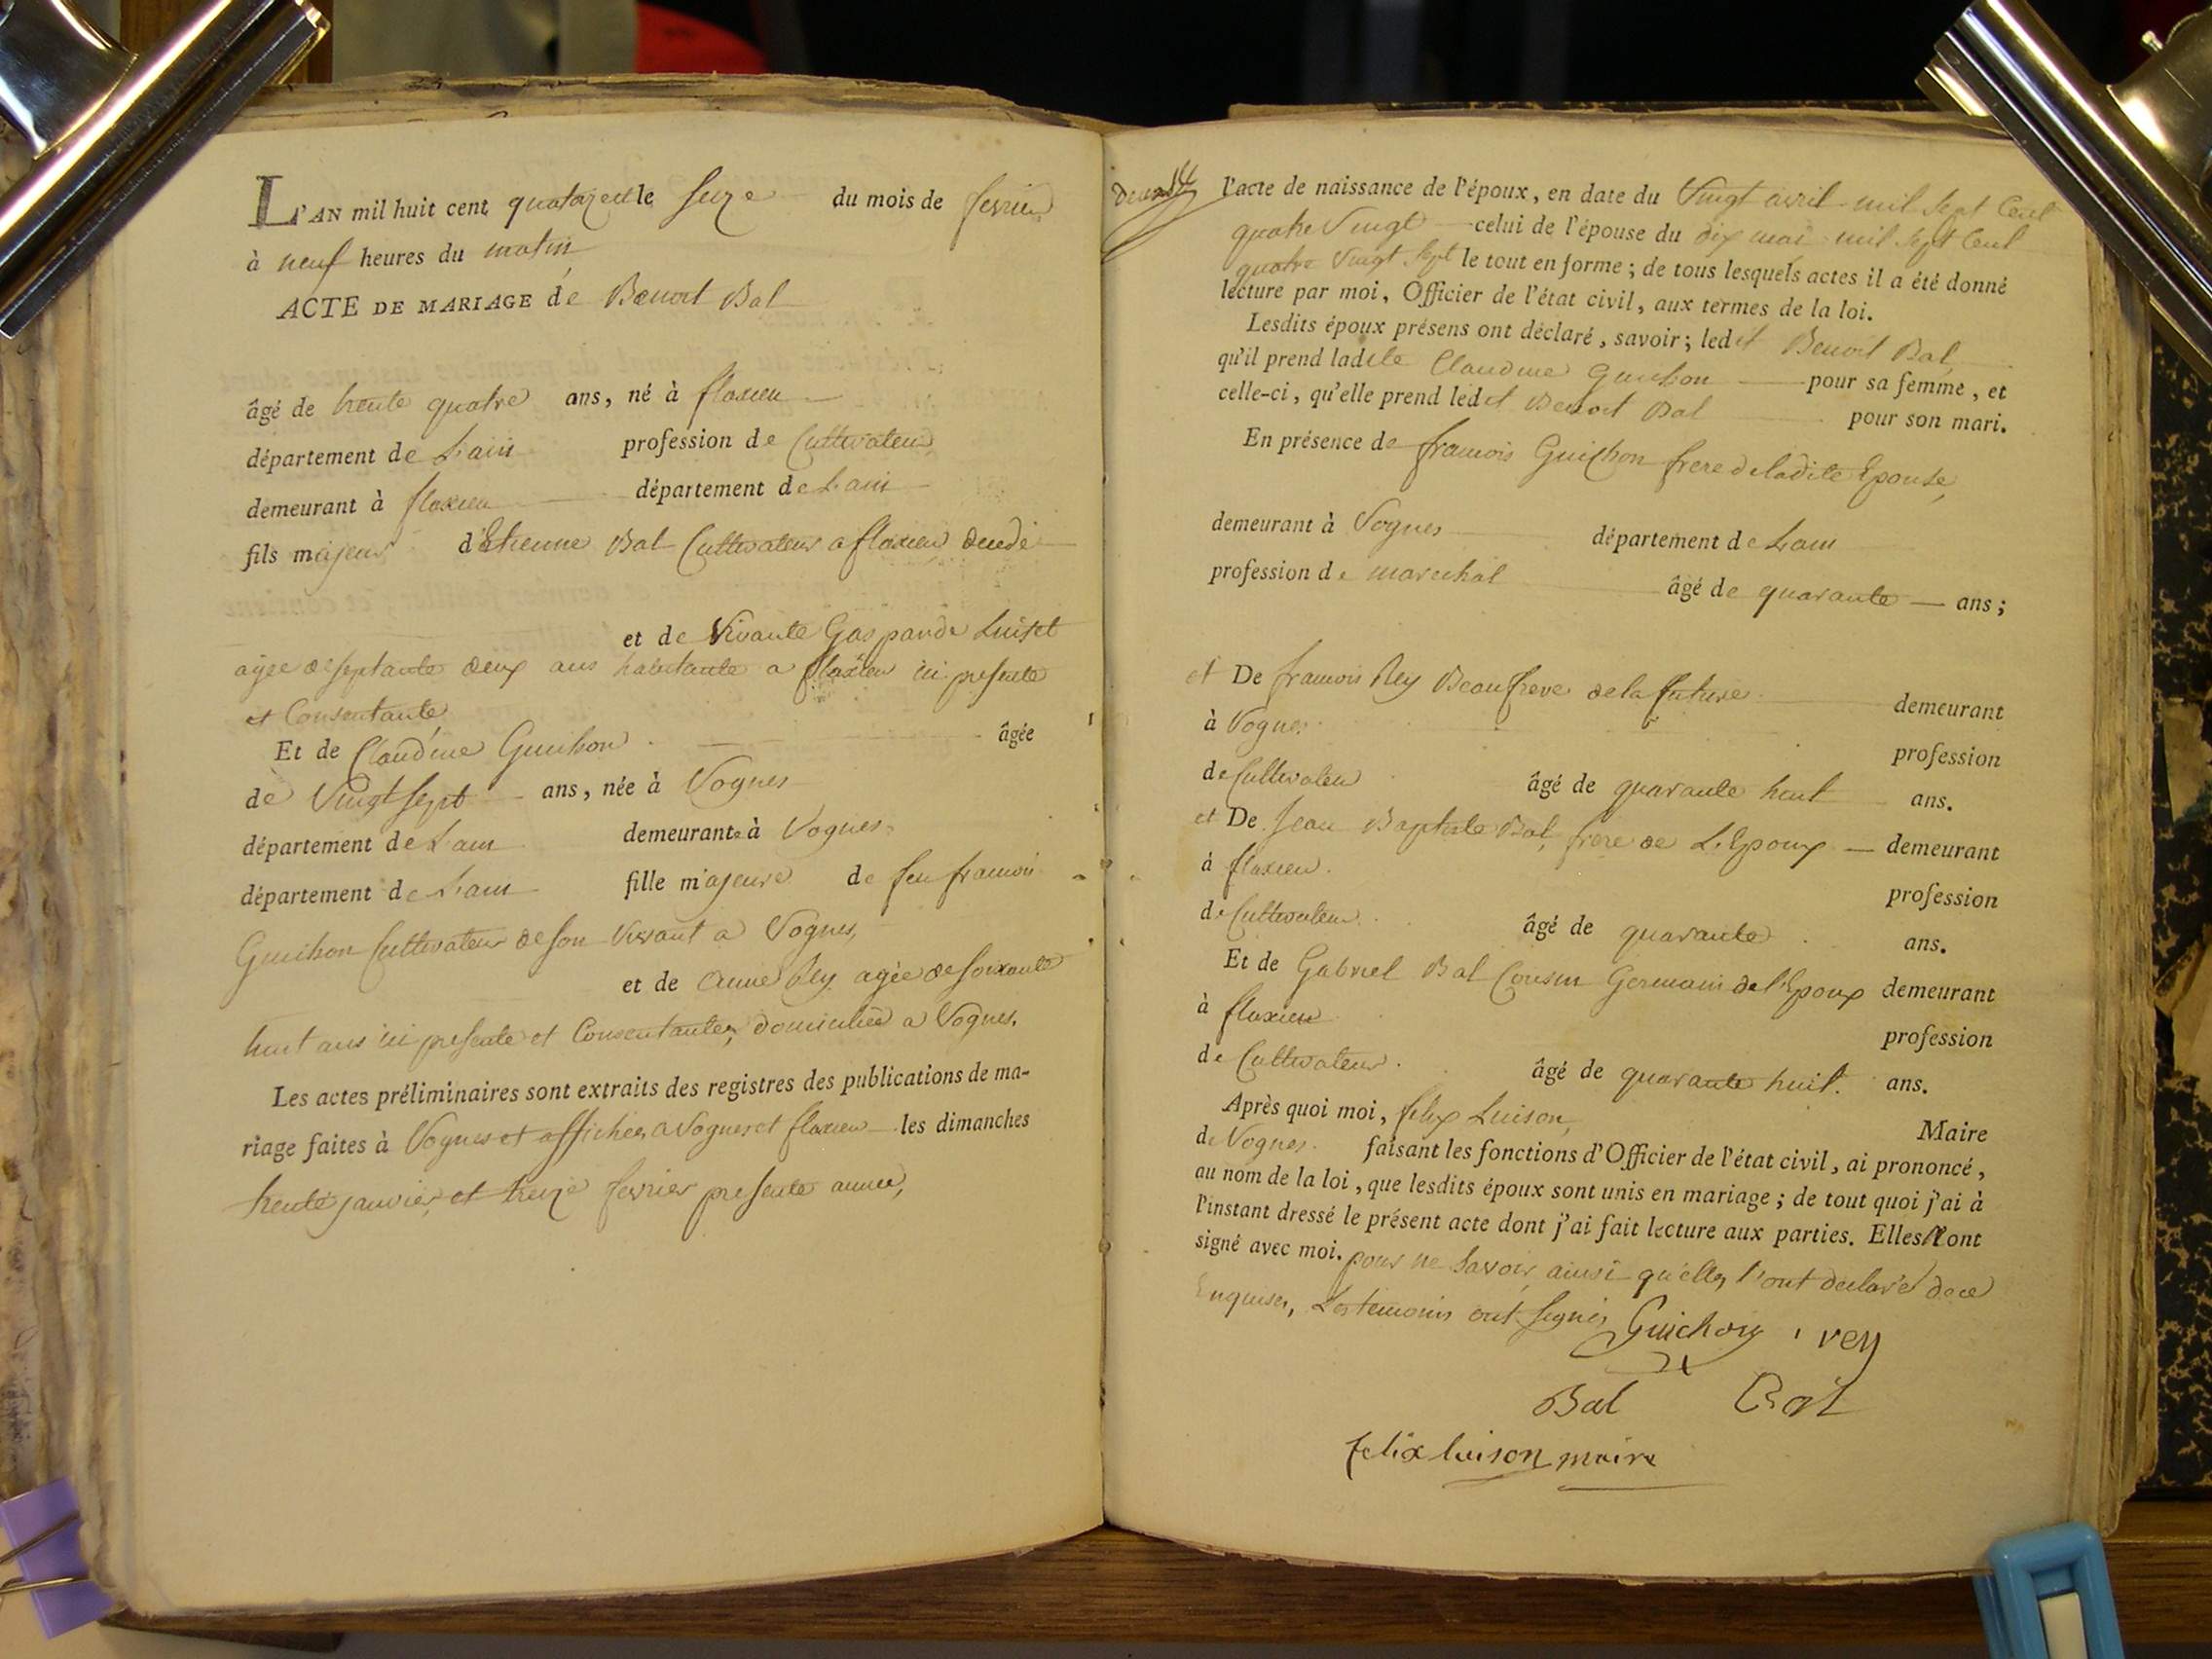 L'AN mil huit cent quatorze et le seize du mois de fevrier
à neuf heures du matin
ACTE DE MARIAGE de Benoit Bal
âgé de trente quatre ans, né à flaxieu
département de L'ain profession de Cultivateur
demeurant à flaxieu département de L'ain
fils majeur d'Etienne Bal Cultivateur a flaxieu
et de Vivante Gasparde Luiset
agée de septante deux ans habitante a flaxieu ici presente
et Consentante
Et de Claudine Guichon âgée
de Vingt sept ans, née à Vognes
département de L'ain demeurante à Vognes
département de L'ain fille majeure de feu francois
Guichon Cultivateur de son Vivant a Vognes,
et de Anne Rey agée de soixante
huit ans ici presente et Consentante, domiciliée a Vognes.
Les actes préliminaires sont extraits des registres des publications de ma-
riage faites à Vognes et affichées a Vognes et flaxieu les dimanches
trente janvier et treize fevrier presente année,
l'acte de naissance de l'époux, en date du Vingt avril mil sept Cent
quatre Vingt celui de l'épouse du dix mai mil sept Cent
quatre Vingt sept le tout en forme ; de tous lesquels actes il a été donné
lecture par moi, Officier de l'état civil, aux termes de la loi.
Lesdits époux présens ont déclaré, savoir ; ledit Benoit Bal
qu'il prend ladite Claudine Guichon pour sa femme, et
celle-ci, qu'elle prend ledit Benoit Bal pour son mari.
En présence de francois Guichon frere de ladite Epouse,
demeurant à Vognes département de L'ain
profession de marechal âgé de quarante ans ;
et De francois Rey Beaufrere de la future demeurant
à Vognes profession
de Cultivateur âgé de quarante huit ans.
et De Jean Baptiste Bal, frere de L'Epoux demeurant
à flaxieu. profession
de Cultivateur. âgé de quarante ans.
Et de Gabriel Bal Cousin Germain de l'Epoux demeurant
à flaxieu profession
de Cultivateur. âgé de quarante huit. ans.
Après quoi moi, felix Luison, Maire
de Vognes. faisant les fonctions d'Officier de l'état civil, ai prononcé,
au nom de la loi, que lesdits époux sont unis en mariage ; de tout quoi j'ai à
l'instant dressé le présent acte dont j'ai fait lecture aux parties. Elles n'ont
signé avec moi. pour ne savoir, ainsi qu'elles l'ont declaré de ce
Enquises, Les temoins ont signés Guichon rey
Bal Bal
felix luison maire